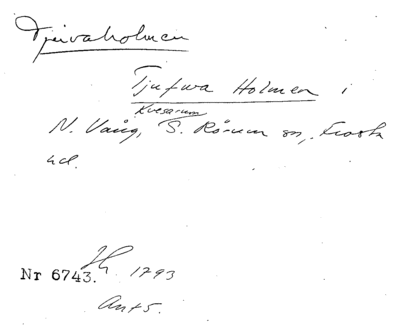 Tjuvaholmen
Tjufwa Holmen i
Kvesarum
N. Vång, S. Rörum sn, Frosta
hd.
Nr 6743. 1793
Ant 5.